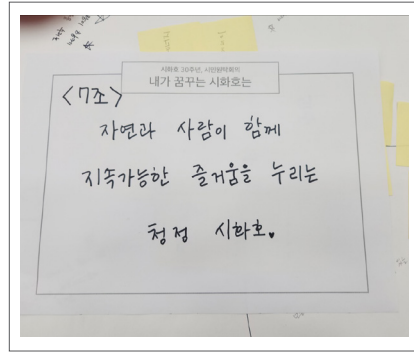 시화호 20주년, 시민원탁회의
내가 꿈꾸는 시화호는
<7조>
자연과 사람이 함께
지속가능한 즐거움을 누리는
청정 시화호♥